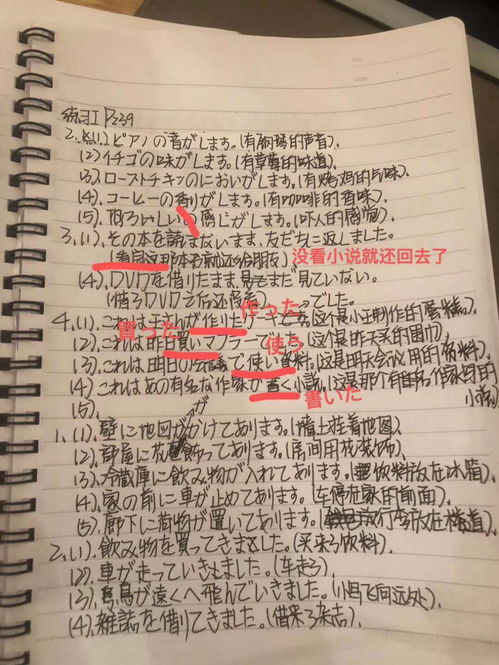 练习I P239
2.(1)ピアノの音がします。(有钢琴的声音).
(2)イチゴの味がします。(有草莓的味道).
(3).ローストチキンのにおいがします。(有烤鸡的气味).
(4).コーヒーの香りがします。(有咖啡的香味).
(5).恐ろしい感じがします。(吓人的感觉).
3.(1).その本を読まないまま,友だちに返しました。
没看小说就还回去了
(4).DVDを借りたまま,まだ見ていない。
作った
4.(1).これは王さんが作りたケーキです(这个是小王制作的蛋糕).
買った
(2).これは昨日買いマフラーでした。(这是昨天买的围巾).
使う
(3).これは明日の会議で使い資料。(这是明天会议用的资料).
(4)これはあの有名な作家が書く小説。(这是那个有名作家写的小说)
書いた
(5).
1.(1).壁に地図がかけてあります。(墙上挂着地图).
が
(2).部屋に花飾ってあります。(房间用花装饰).
(3).冷蔵庫に飲み物が入れてあります。(饮料放在冰箱).
(4).家の前に車が止めてあります。(车停在家的前面).
(5)廊下に荷物が置いてあります。(行李放在)
2.(1).飲み物を買ってきました。(买来了饮料).
(2).車が走っていきました。(车走了).
(3).鳥が遠くへ飛んでいきました。(小鸟飞向远处).
(4).雑誌を借りてきました。(借来了杂志).